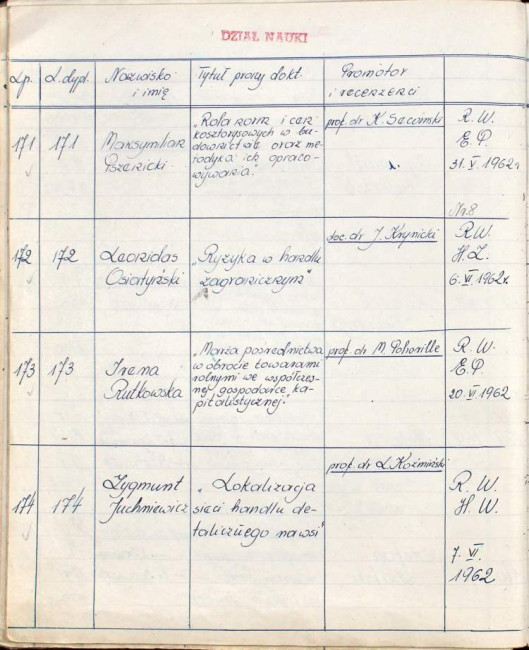 DZIAŁ NAUKI
Lp.
L. dypl.
Nazwisko
i imię
Tytuł pracy dokt.
Promotor
i recenzenci
171
171
Maksymilian
Pszenicki
„Rola norm i cen
kosztorysowych w bu-
downictwie oraz me-
todyka ich opraco-
wywania."
prof. dr K. Secomski
R. W.
E. P.
31. V. 1962 r.
172
172
Leonidas
Osiatyński
„Ryzyka w handlu
zagranicznym"
doc. dr J. Krynicki
Nr. 8
R. W.
H. Z.
6. VI. 1962 r.
173
173
Irena
Rutkowska
„Marża pośrednictwa
w obrocie towarami
rolnymi we współczes-
nej gospodarce ka-
pitalistycznej."
prof. dr M. Pohorille
R. W.
E. P.
20. VI. 1962
174
174
Zygmunt
Juchniewicz
„Lokalizacja
sieci handlu de-
talicznego na wsi"
prof. dr L. Koźmiński
R. W.
H. W.
7. VI.
1962